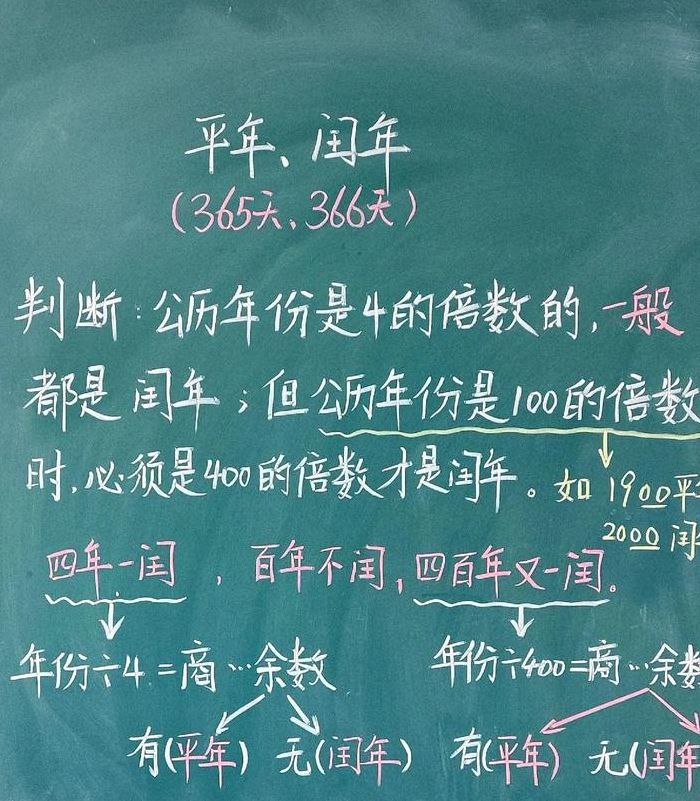 平年、闰年
(365天、366天)
判断:公历年份是4的倍数的,一般
都是闰年;但公历年份是100的倍数
时,必须是400的倍数才是闰年。如 1900平
2000 闰
四年一闰,百年不闰,四百年又一闰。
年份÷4=商…余数 年份÷400=商…余数
有(平年) 无(闰年) 有(平年) 无(闰年